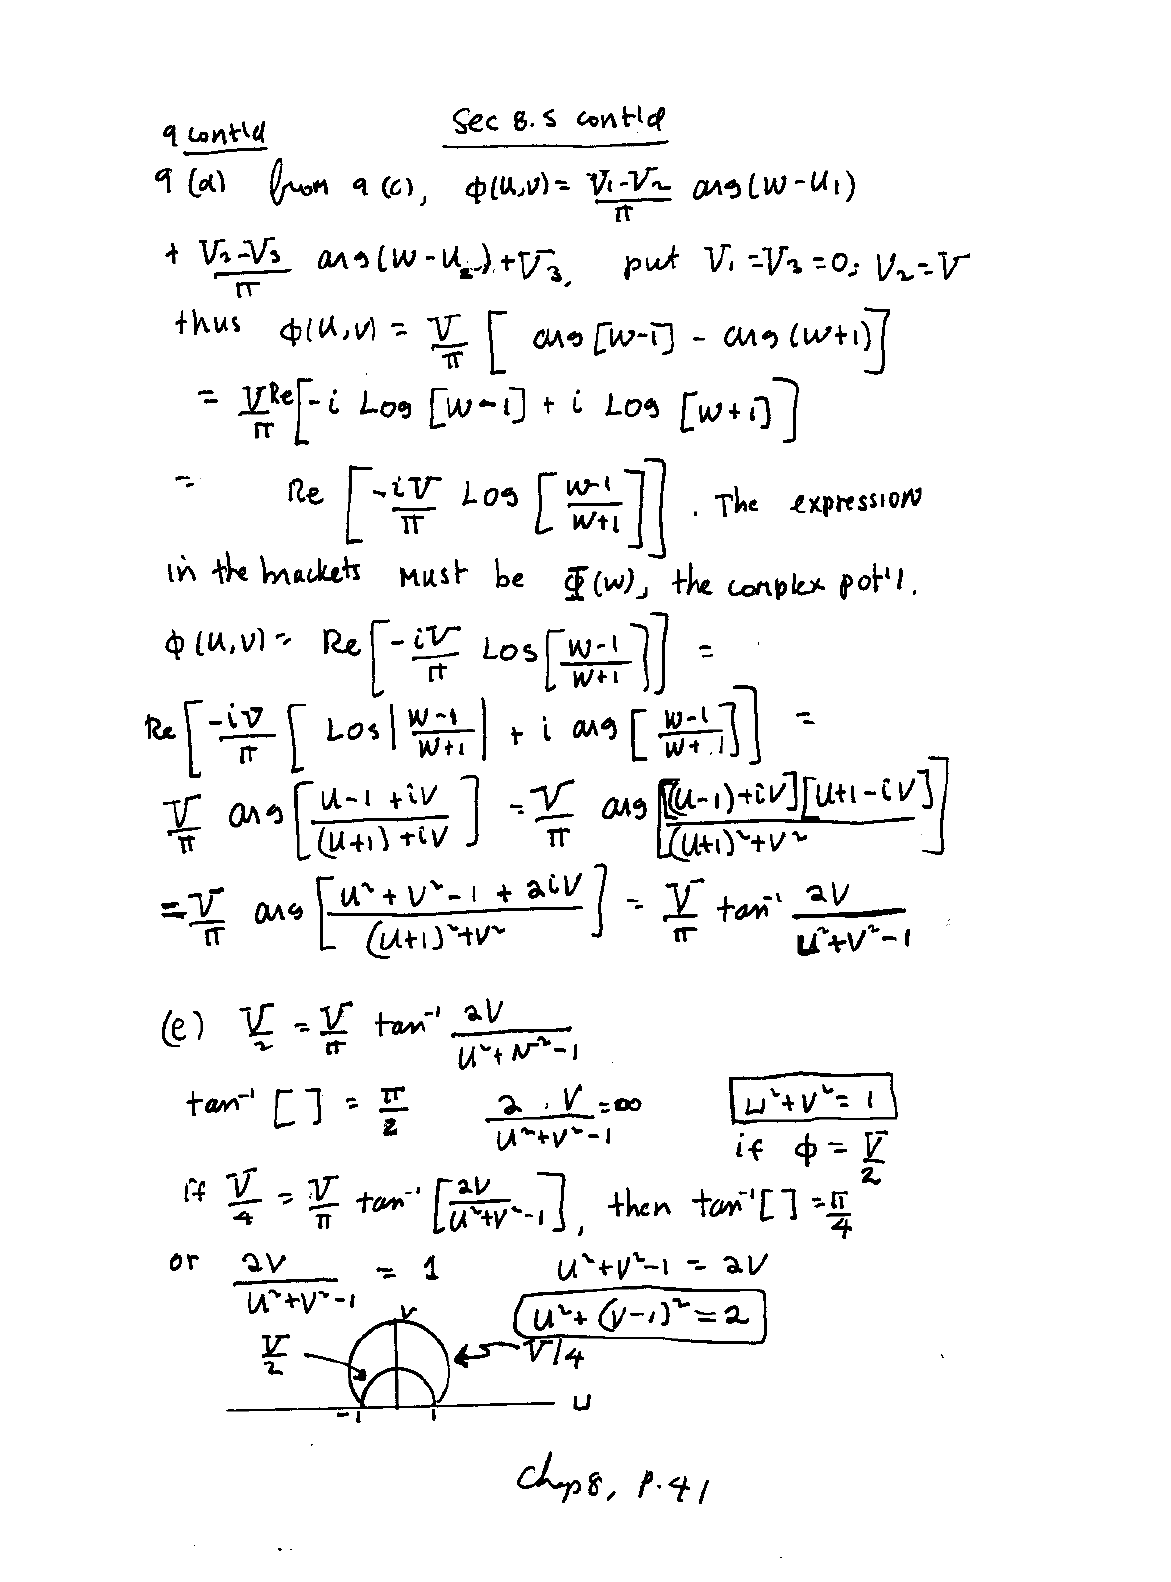 Sec 8.5 cont'd
9 cont'd
9 (d) from 9 (c), ϕ(u,v) = (V₁-V₂)/π arg(w-u₁)
+ (V₂-V₃)/π arg(w-u₂) + V₃, put V₁=V₃=0; V₂=V
thus ϕ(u,v) = V/π [ arg[w-1] - arg(w+1) ]
= V/π Re[ -i Log [w-1] + i Log [w+1] ]
= Re [ -iV/π Log [ (w-1)/(w+1) ] ]. The expression
in the brackets must be Φ(w), the complex pot'l.
ϕ(u,v) = Re [ -iV/π Log [ (w-1)/(w+1) ] ] =
Re [ -iV/π [ Log | (w-1)/(w+1) | + i arg [ (w-1)/(w+1) ] ] =
V/π arg [ (u-1+iv)/((u+1)+iv) ] = V/π arg [ [(u-1)+iv][u+1-iv]/((u+1)²+v²) ]
= V/π arg [ (u²+v²-1+2iv)/((u+1)²+v²) ] = V/π tan⁻¹ 2v/(u²+v²-1)
(e) V/2 = V/π tan⁻¹ 2v/(u²+v²-1)
tan⁻¹ [ ] = π/2 2.v/(u²+v²-1) = ∞ u²+v²=1
if ϕ = V/2
if V/4 = V/π tan⁻¹ [ 2v/(u²+v²-1) ], then tan⁻¹[ ] = π/4
or 2v/(u²+v²-1) = 1 u²+v²-1 = 2v
u²+(v-1)²=2
v
V/2 V/4
u
-1 1
Chap 8, p.41